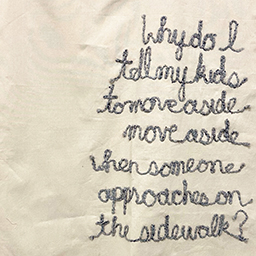 Why do I
tell my kids
to move aside
move aside
when someone
approaches on
the sidewalk?